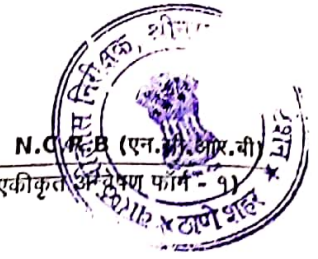 निरीक्षक,
N.C.R.B (एन.सी.आर.बी)
एकीकृत अन्वेषण फॉर्म - १)
★ ठाणे शहर ★